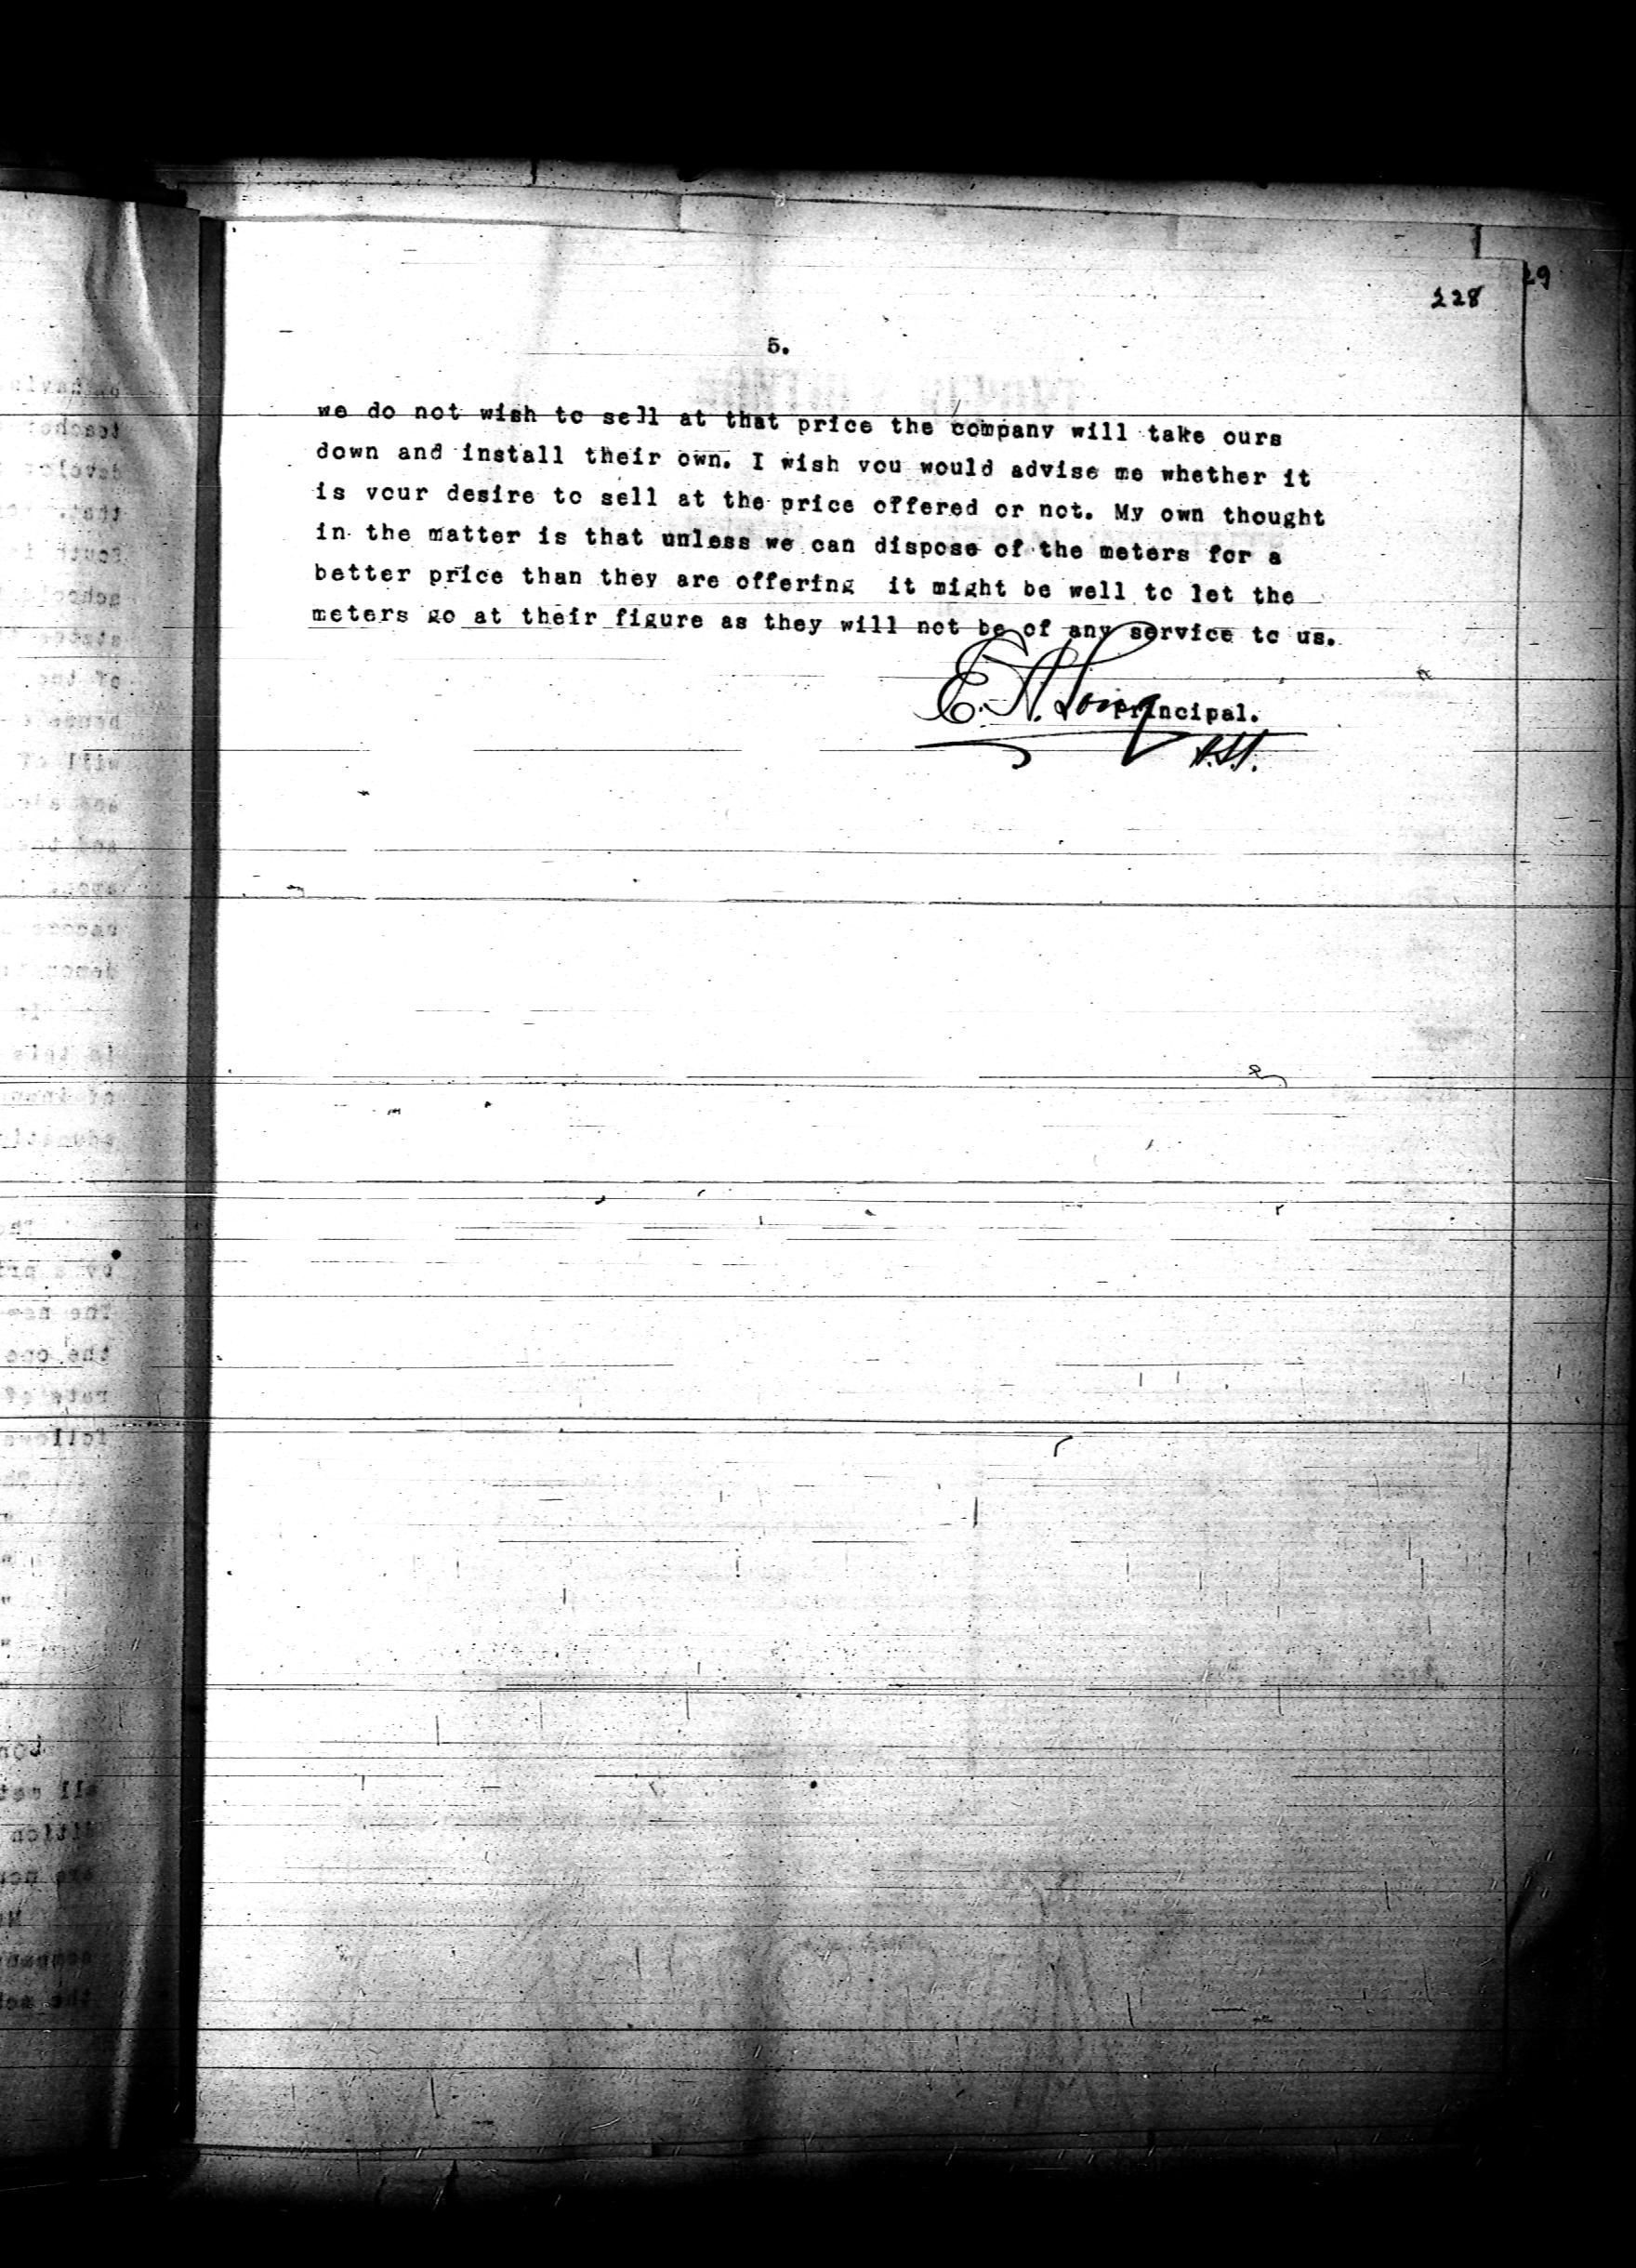 228
5.
we do not wish to sell at that price the company will take ours
down and install their own. I wish you would advise me whether it
is your desire to sell at the price offered or not. My own thought
in the matter is that unless we can dispose of the meters for a
better price than they are offering it might be well to let the
meters go at their figure as they will not be of any service to us.
E. A. Long
Principal.